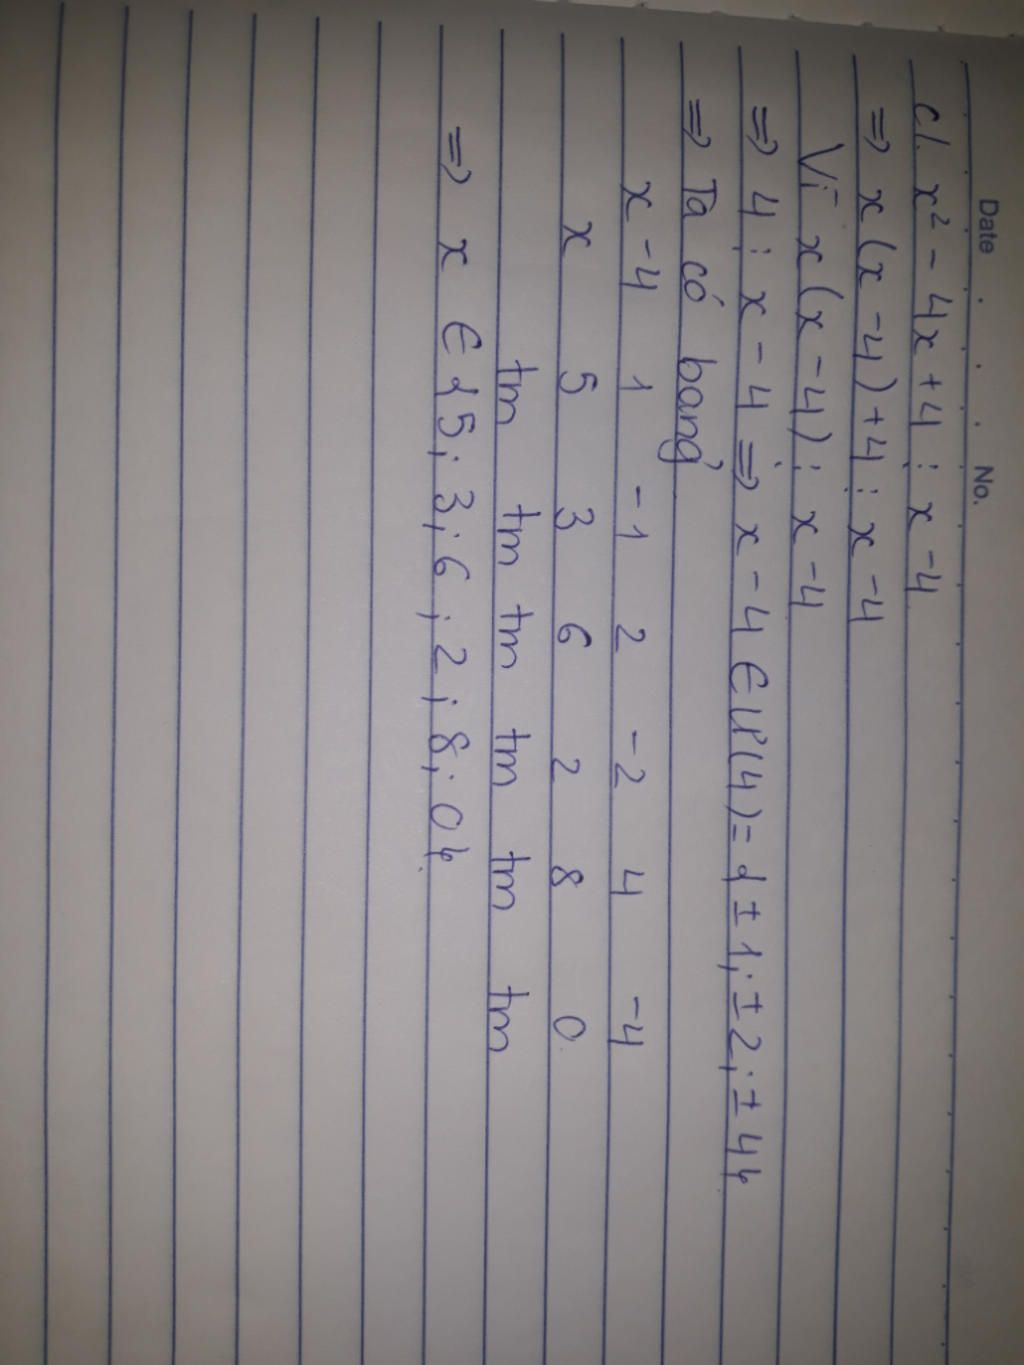 Date . . . No.
c/. x² - 4x + 4 ⋮ x - 4
=> x(x - 4) + 4 ⋮ x - 4
Vì x(x - 4) ⋮ x - 4
=> 4 ⋮ x - 4 => x - 4 ∈ Ư(4) = {±1; ±2; ±4}
=> Ta có bảng
x - 4 1 -1 2 -2 4 -4
x 5 3 6 2 8 0
tm tm tm tm tm tm
=> x ∈ {5; 3; 6; 2; 8; 0}.